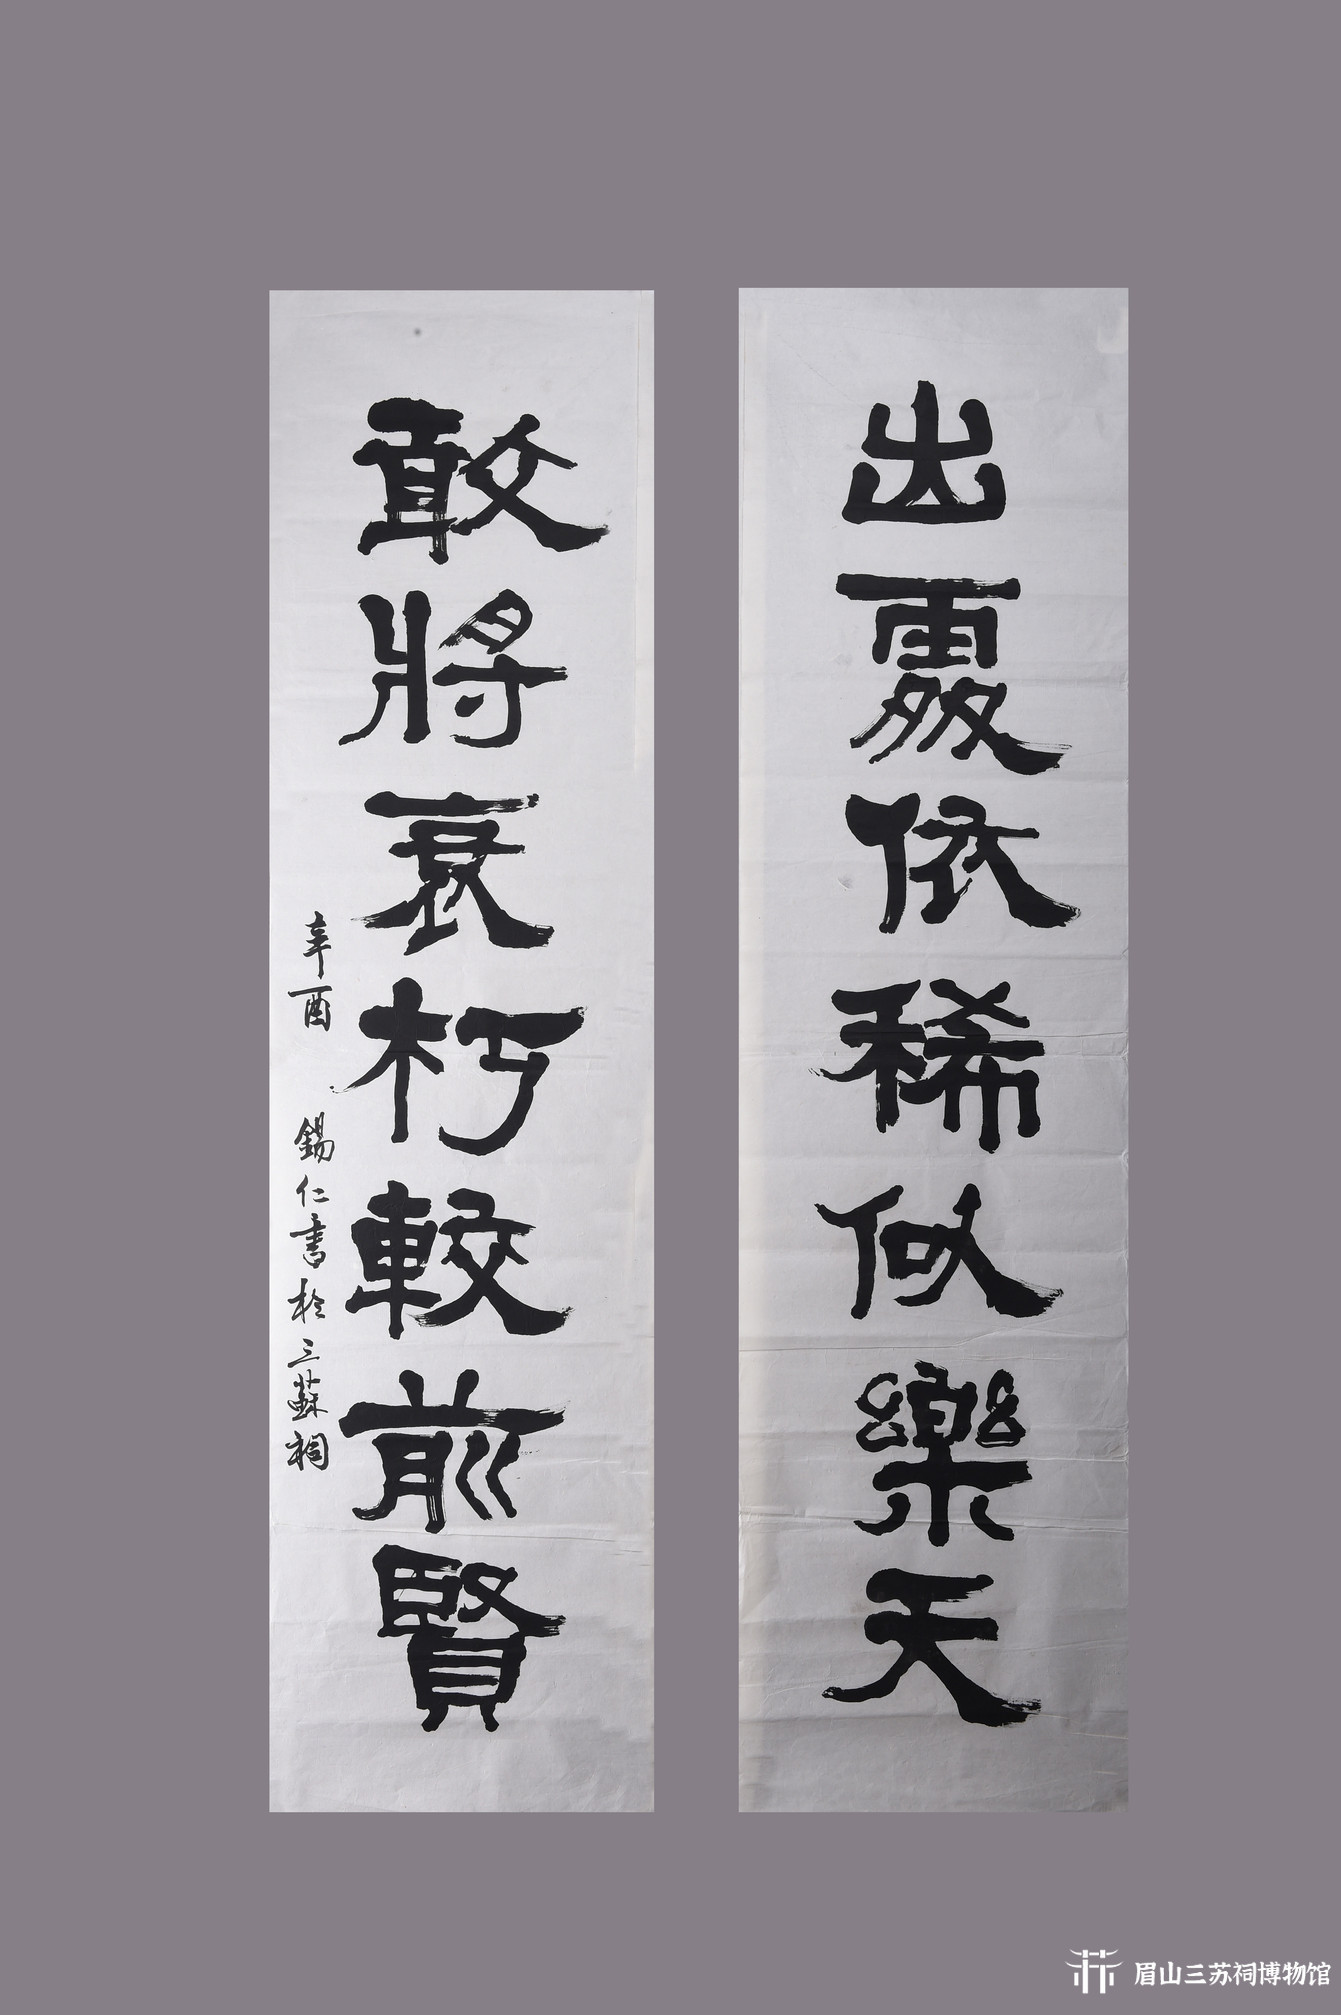 出處依稀似樂天
敢將衰朽較前賢
辛酉 錫仁書於三蘇祠
眉山三苏祠博物馆